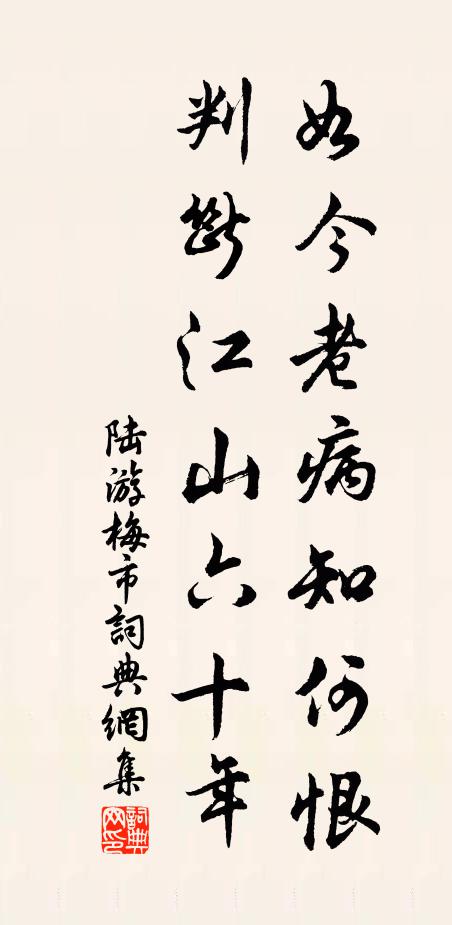 如今老病知何恨
判斷江山六十年
陸游梅市詞典網集
詞典網印